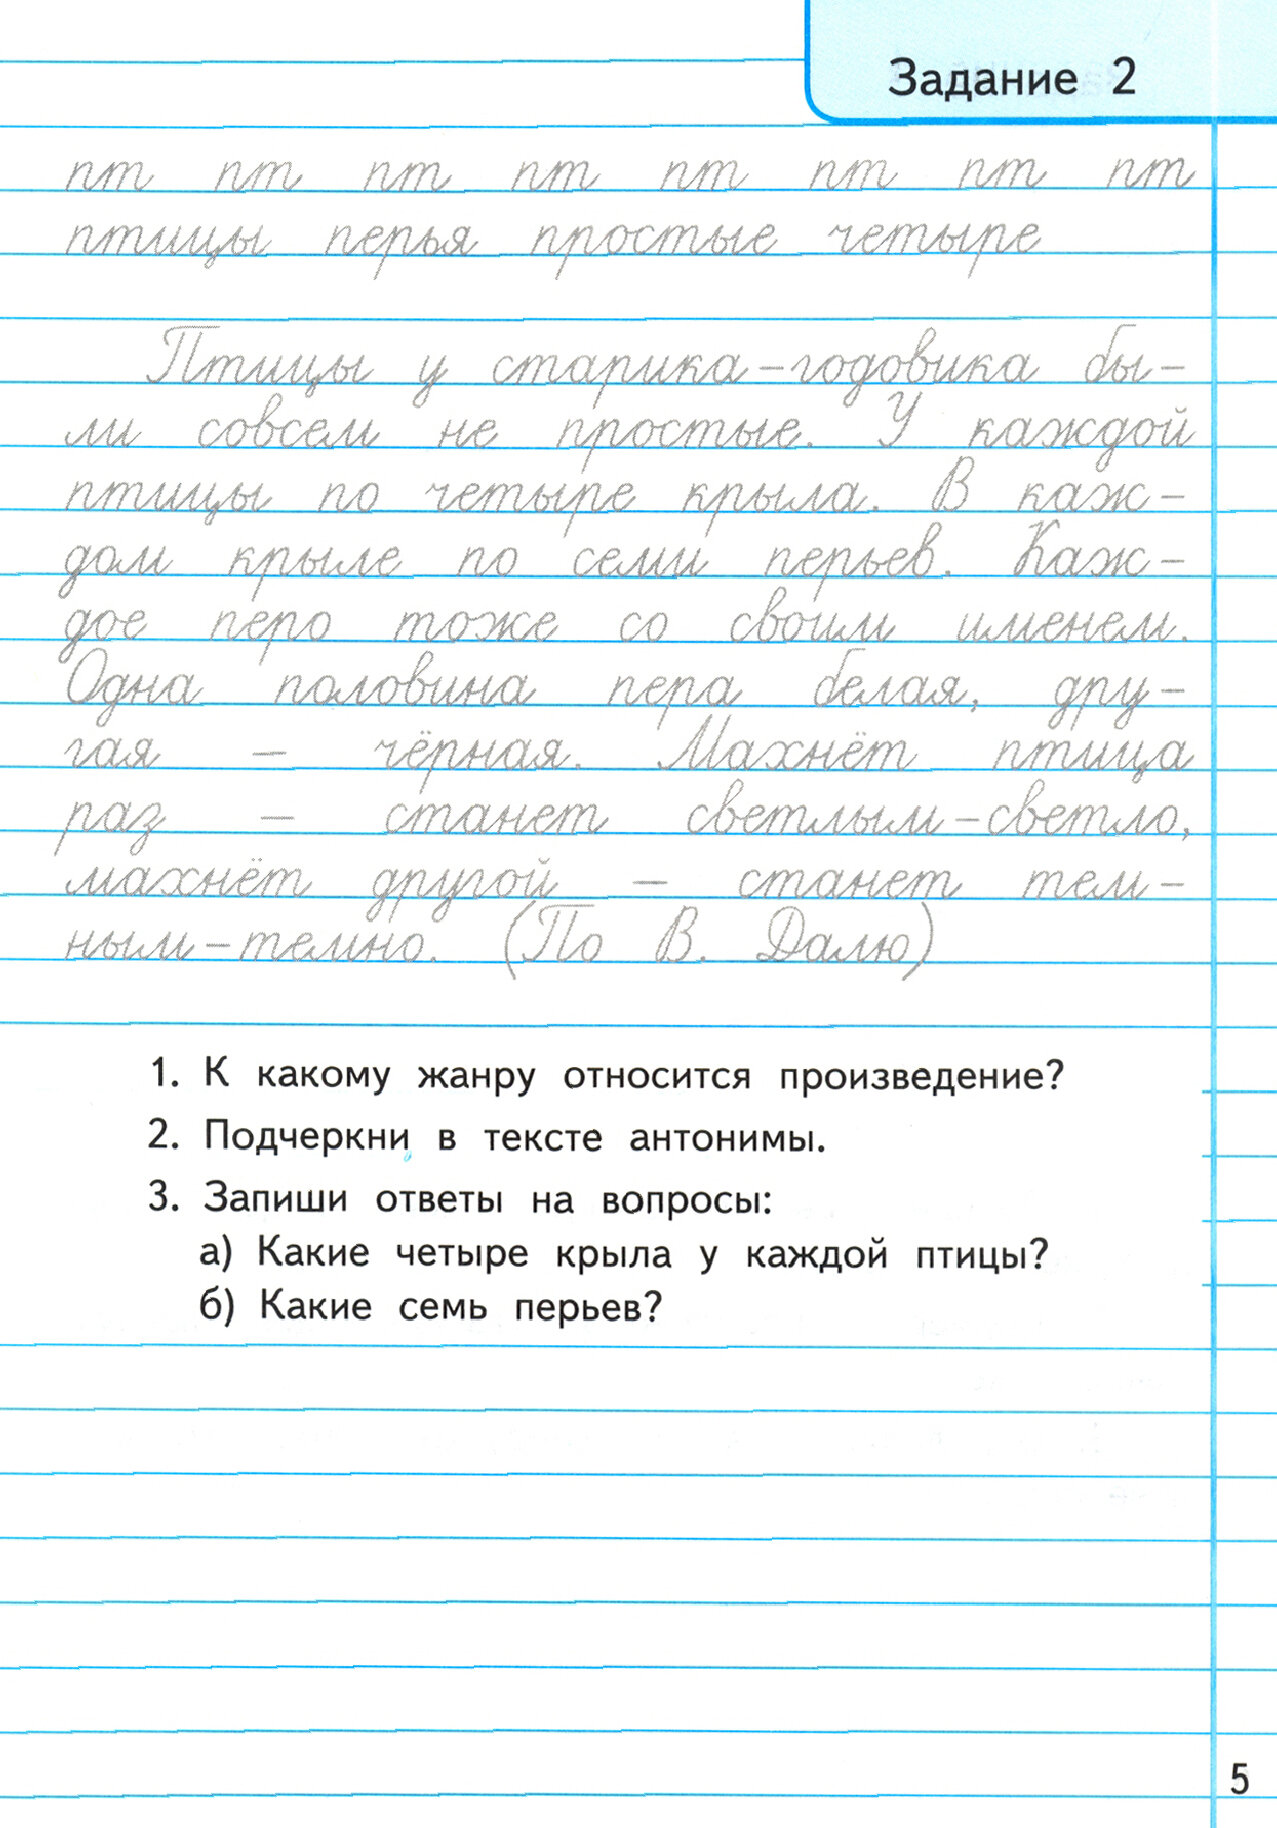 Задание 2
пт пт пт пт пт пт пт пт
птицы перья простые четыре
Птицы у старика-годовика бы-
ли совсем не простые. У каждой
птицы по четыре крыла. В каж-
дом крыле по семи перьев. Каж-
дое перо тоже со своим именем.
Одна половина пера белая, дру-
гая – чёрная. Махнёт птица
раз – станет светлым-светло,
махнёт другой – станет тем-
ным-темно. (По В. Далю)
1. К какому жанру относится произведение?
2. Подчеркни в тексте антонимы.
3. Запиши ответы на вопросы:
а) Какие четыре крыла у каждой птицы?
б) Какие семь перьев?
5